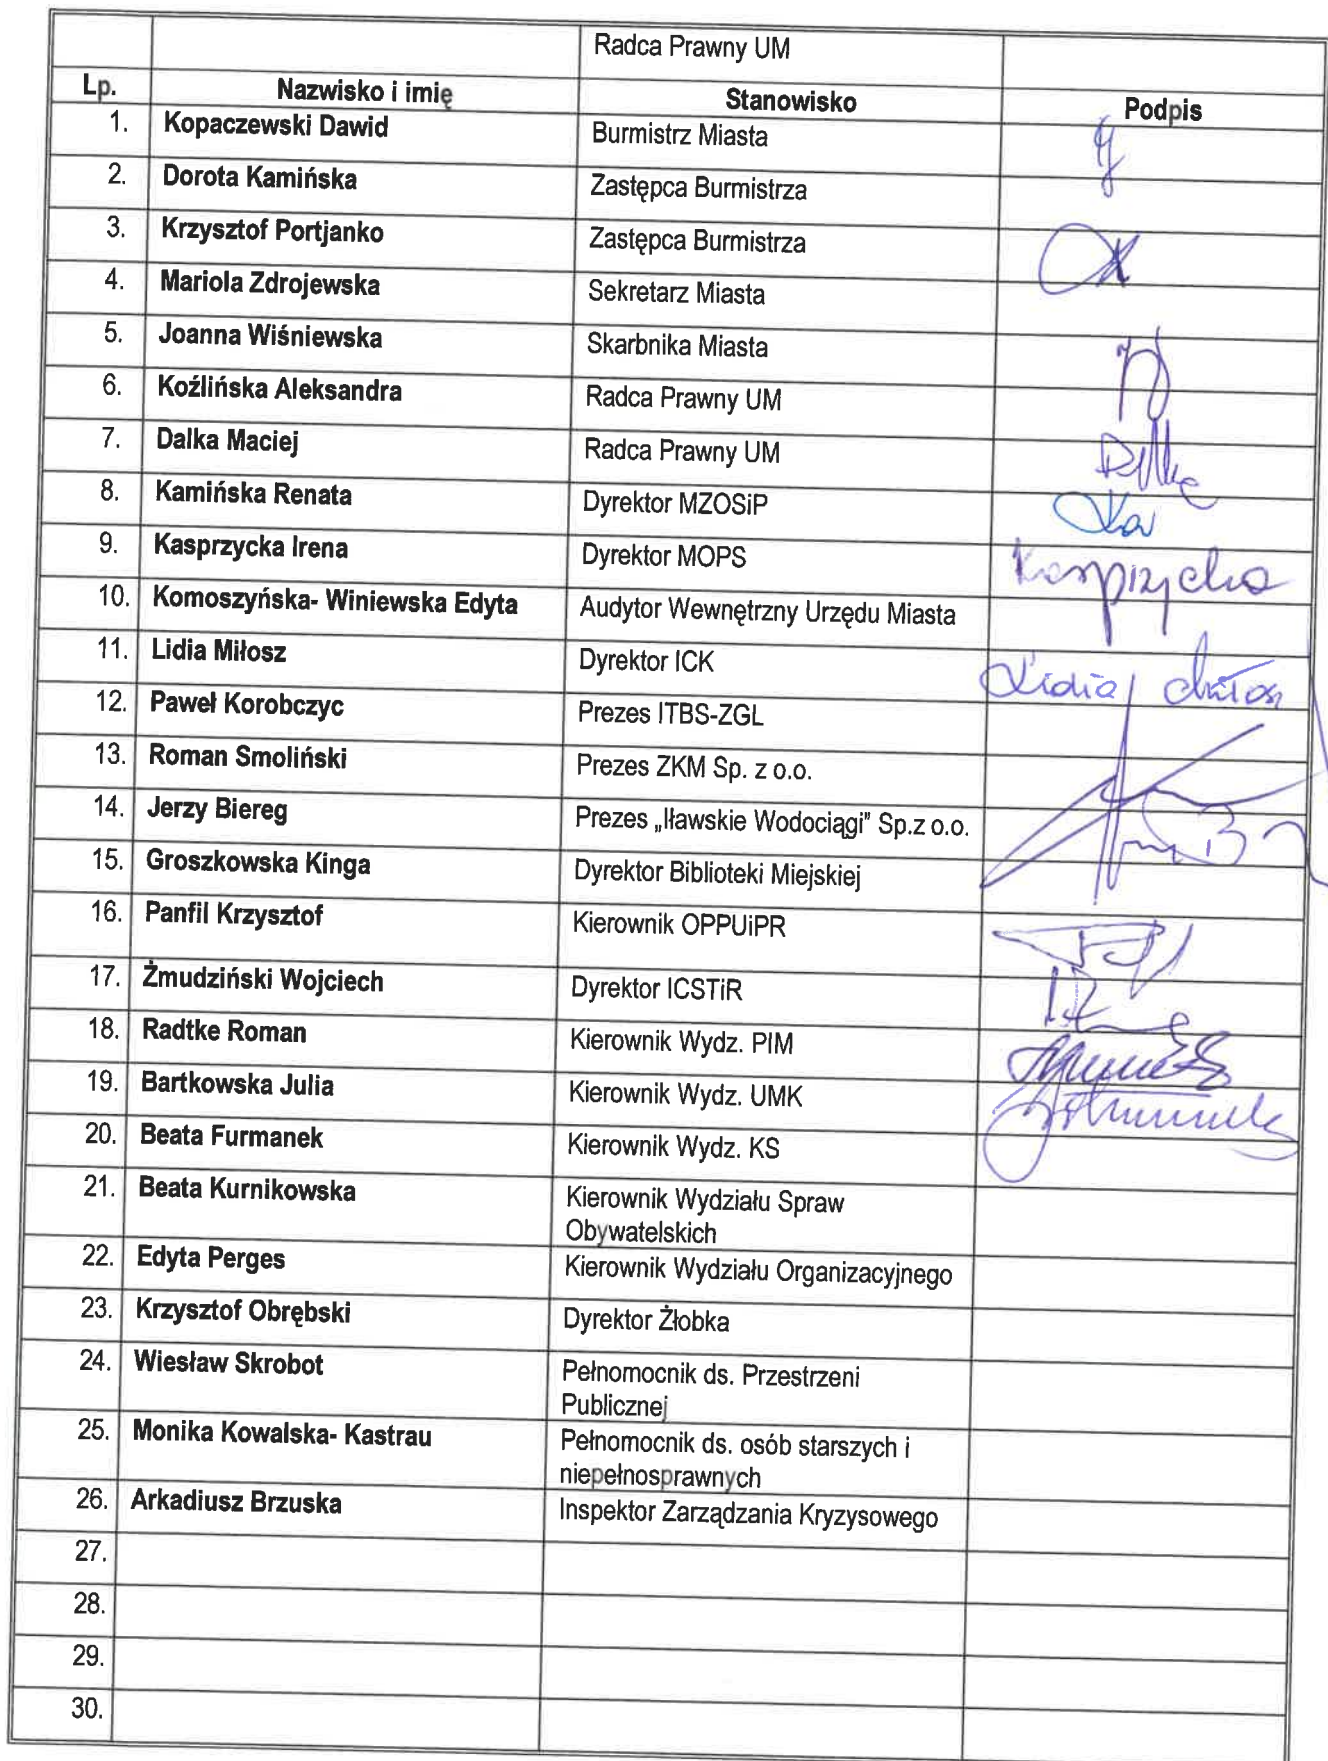 Radca Prawny UM
Lp. Nazwisko i imię Stanowisko Podpis
1. Kopaczewski Dawid Burmistrz Miasta
2. Dorota Kamińska Zastępca Burmistrza
3. Krzysztof Portjanko Zastępca Burmistrza
4. Mariola Zdrojewska Sekretarz Miasta
5. Joanna Wiśniewska Skarbnika Miasta
6. Koźlińska Aleksandra Radca Prawny UM
7. Dalka Maciej Radca Prawny UM
8. Kamińska Renata Dyrektor MZOSiP
9. Kasprzycka Irena Dyrektor MOPS Kasprzycka
10. Komoszyńska- Winiewska Edyta Audytor Wewnętrzny Urzędu Miasta
11. Lidia Miłosz Dyrektor ICK Lidia Miłosz
12. Paweł Korobczyc Prezes ITBS-ZGL
13. Roman Smoliński Prezes ZKM Sp. z o.o.
14. Jerzy Biereg Prezes „Iławskie Wodociągi” Sp.z o.o.
15. Groszkowska Kinga Dyrektor Biblioteki Miejskiej
16. Panfil Krzysztof Kierownik OPPUiPR
17. Żmudziński Wojciech Dyrektor ICSTiR
18. Radtke Roman Kierownik Wydz. PIM
19. Bartkowska Julia Kierownik Wydz. UMK
20. Beata Furmanek Kierownik Wydz. KS
21. Beata Kurnikowska Kierownik Wydziału Spraw
Obywatelskich
22. Edyta Perges Kierownik Wydziału Organizacyjnego
23. Krzysztof Obrębski Dyrektor Żłobka
24. Wiesław Skrobot Pełnomocnik ds. Przestrzeni
Publicznej
25. Monika Kowalska- Kastrau Pełnomocnik ds. osób starszych i
niepełnosprawnych
26. Arkadiusz Brzuska Inspektor Zarządzania Kryzysowego
27.
28.
29.
30.